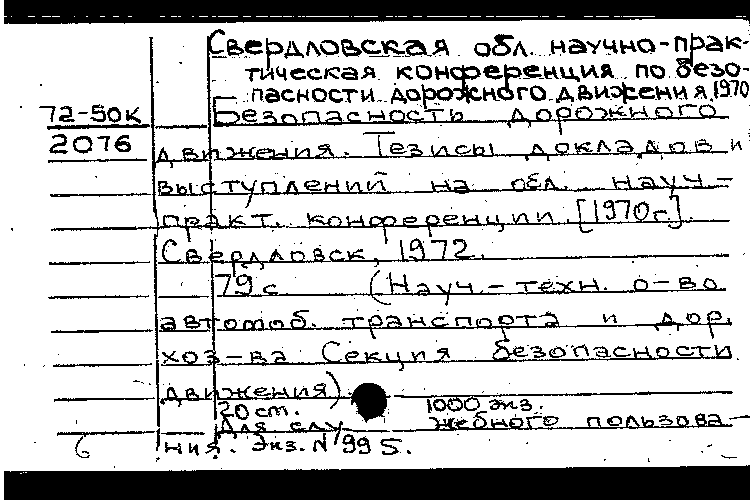 Свердловская обл. научно-прак-
тическая конференция по безо-
пасности дорожного движения, 1970
72-50к
Безопасность дорожного
2076
движения. Тезисы докладов и
выступлений на обл. науч.-
практ. конференции [1970г.].
Свердловск, 1972.
79 с (Науч.-техн. о-во
автомоб. транспорта и дор.
хоз-ва Секция безопасности
движения)
20 см. 1000 экз.
Для служебного пользова-
ния. Экз. N 995.
6